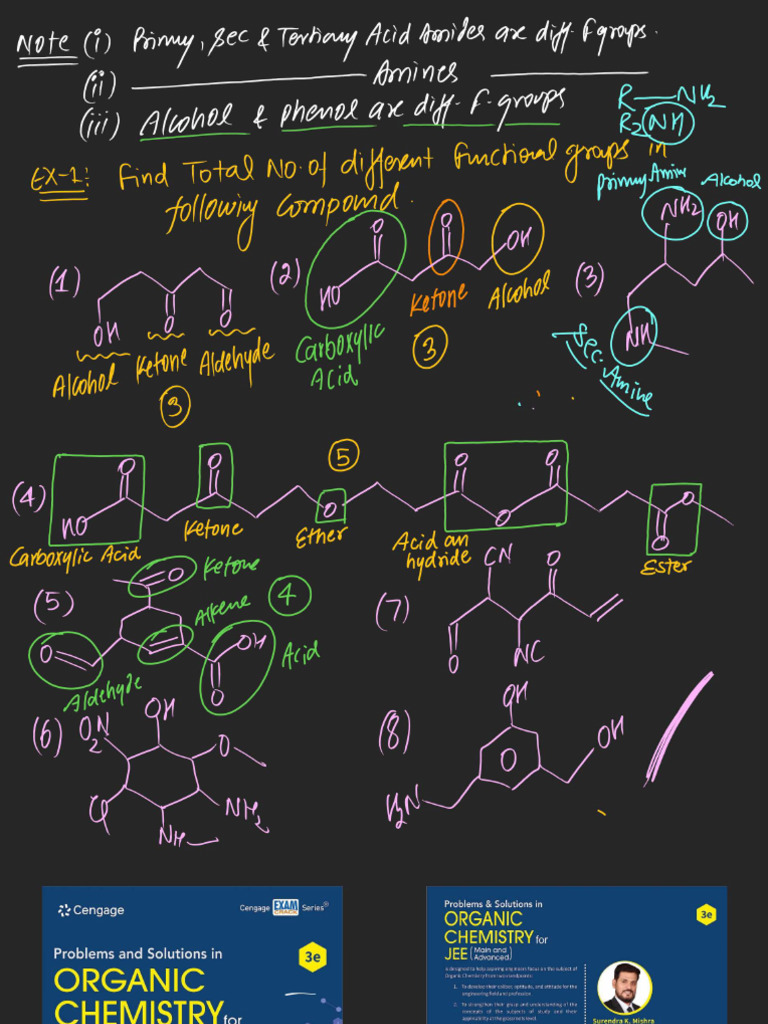 Note (i) Primary, Sec & Tertiary Acid Amides are diff. F. groups.
(ii) ———— Amines ————
(iii) Alcohol & phenol are diff. F. groups
R—NH2
R2NH
EX-1: Find Total No. of different functional groups in
following Compound.
Primary Amine Alcohol
NH2 OH
(1)
OH O O
Alcohol Ketone Aldehyde
3
(2)
O O OH
HO
Carboxylic
Acid
Ketone
Alcohol
3
(3)
NH
Sec. Amine
5
(4)
O O O O O O
HO O O
Carboxylic Acid
Ketone
Ether
Acid an
hydride
Ester
(5)
O Ketone
Alkene 4
O OH Acid
O
Aldehyde
(7)
CN O
O NC
(6)
O2N OH O
Cl NH2
NH
(8)
OH
OH
H2N
Cengage
Cengage EXAM CRACK Series®
3e
Problems and Solutions in
ORGANIC
CHEMISTRY for
Problems & Solutions in
ORGANIC
CHEMISTRY for
JEE (Main and Advanced)
3e
Surendra K. Mishra